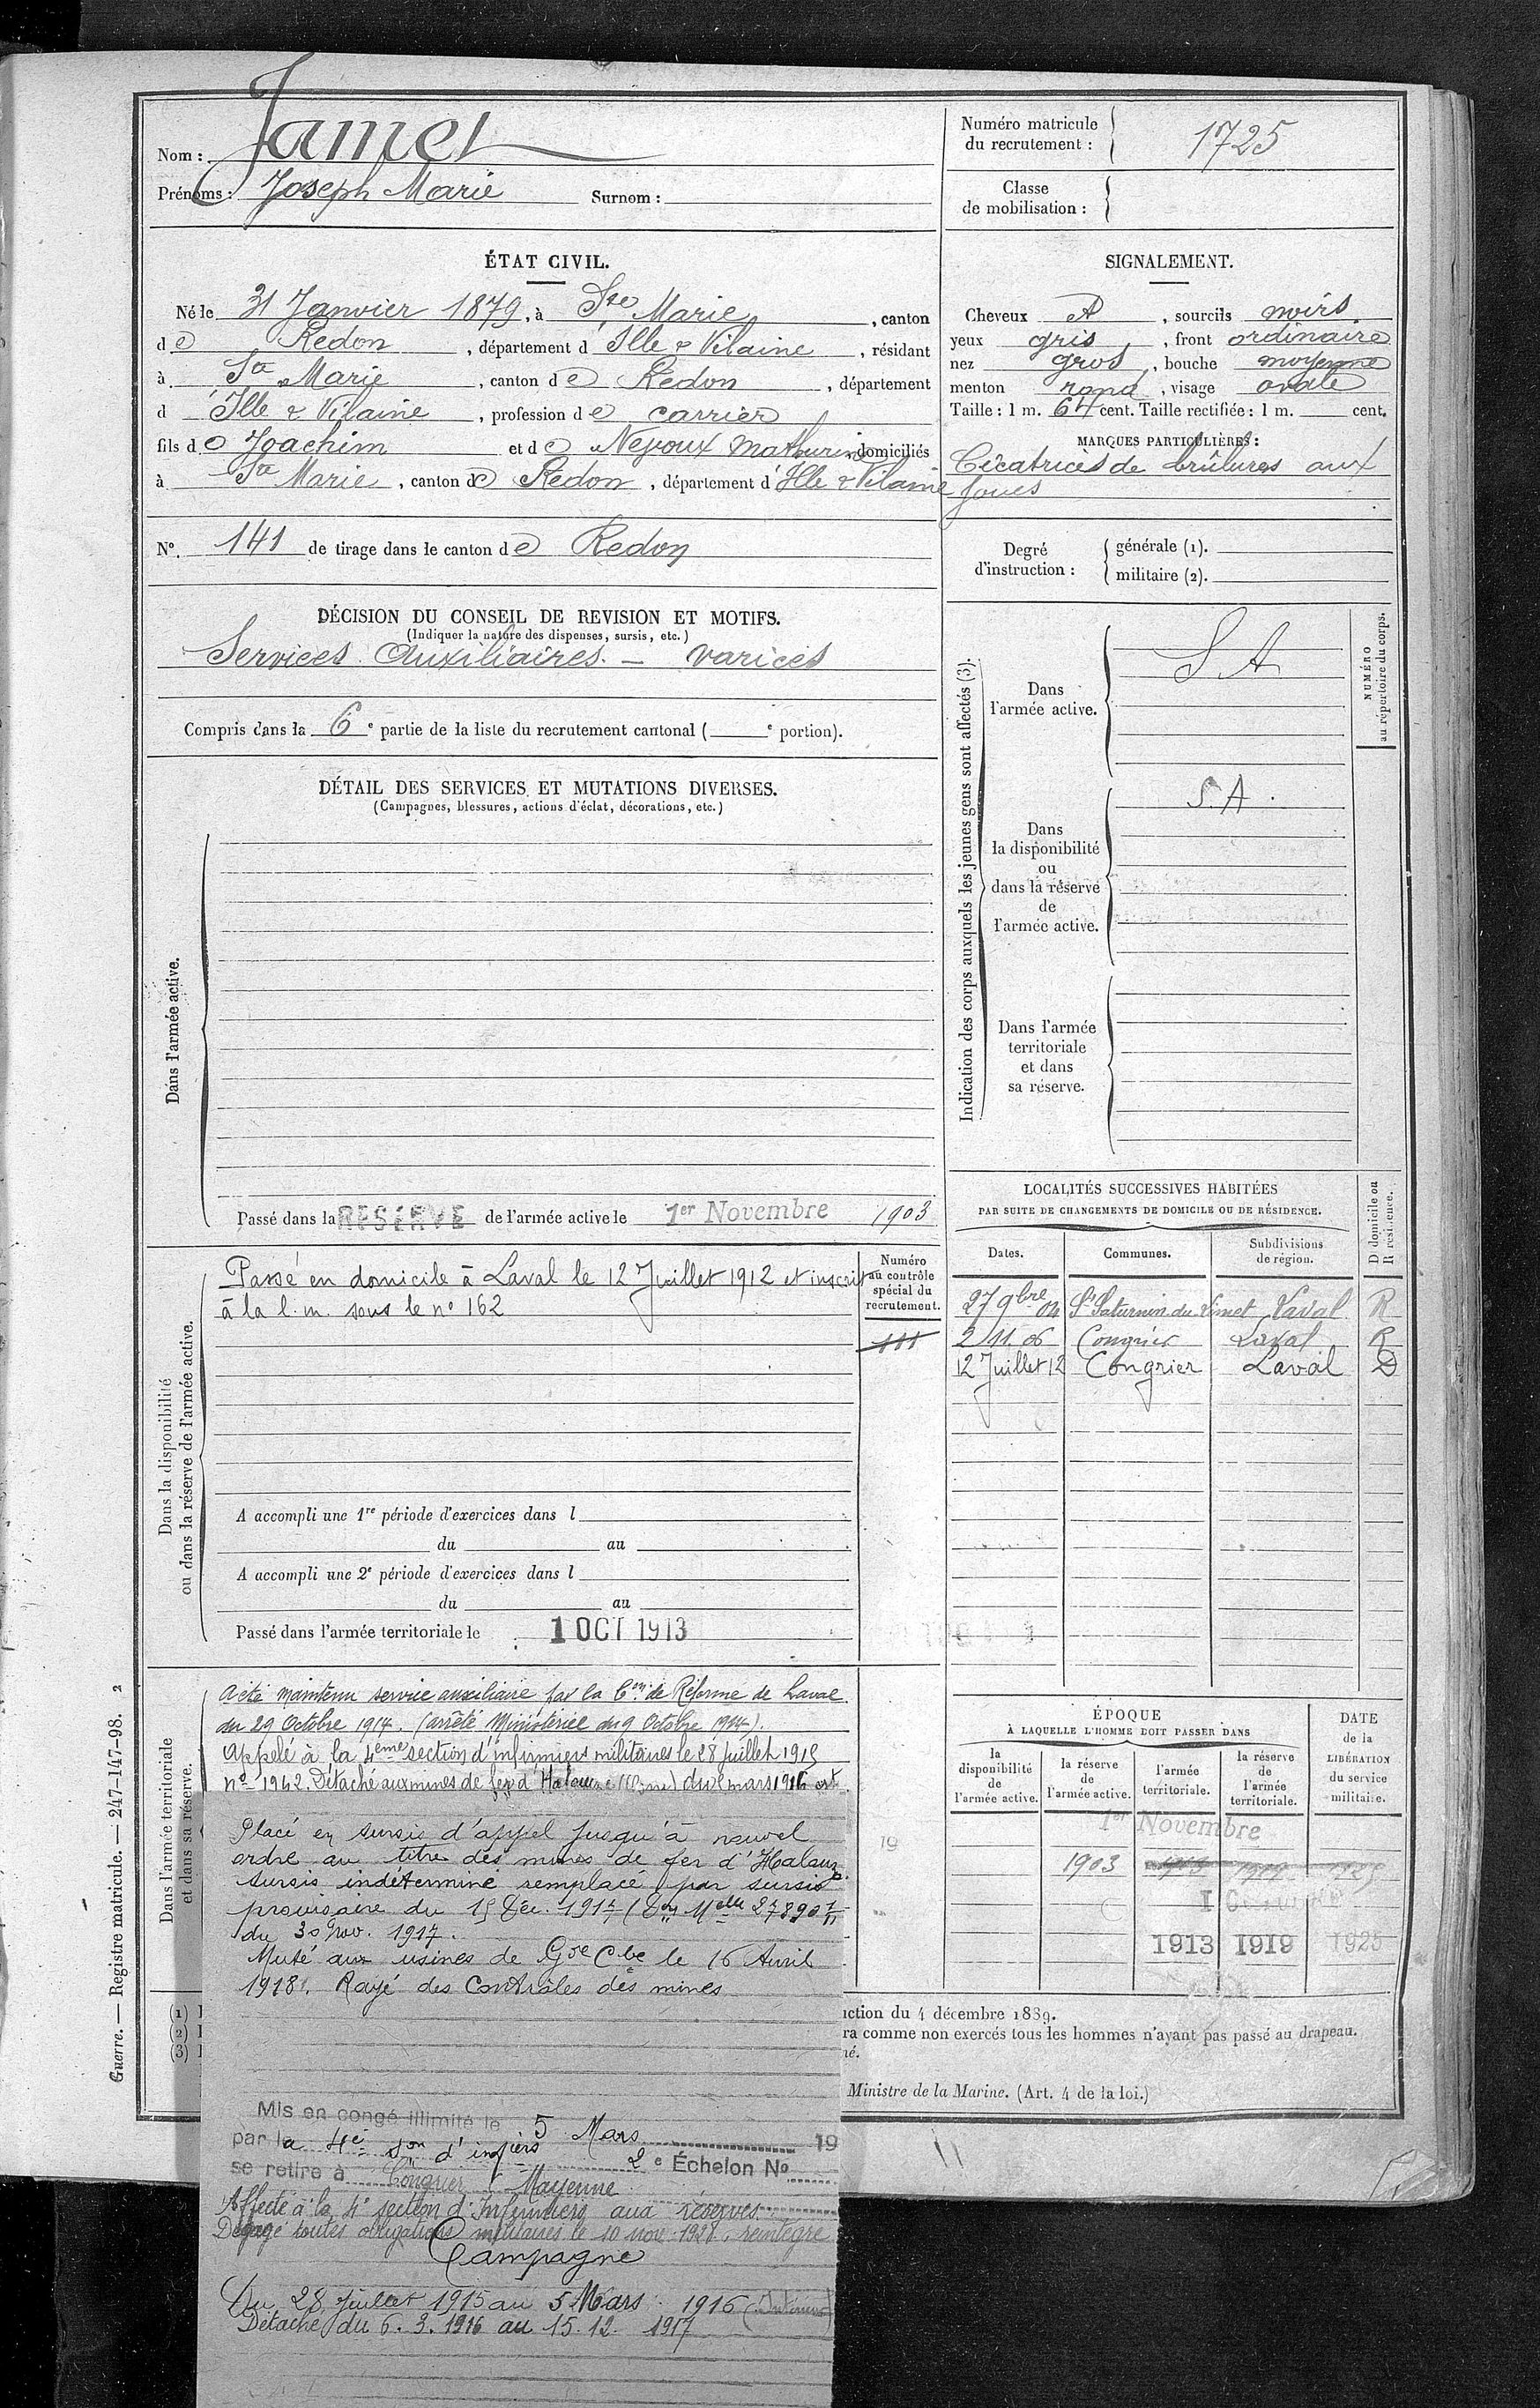 Nom : Jamet
Prénoms : Joseph Marie Surnom :
Numéro matricule du recrutement : 1725
Classe de mobilisation :
ÉTAT CIVIL.
Né le 31 Janvier 1879, à Ste Marie, canton
de Redon, département d'Ille & Vilaine, résidant
à Ste Marie, canton de Redon, département
d'Ille & Vilaine, profession de carrier
fils de Joachim et de Mathurine domiciliés
à Ste Marie, canton de Redon, département d'Ille & Vilaine
SIGNALEMENT.
Cheveux , sourcils noirs
yeux gris, front ordinaire
nez gros, bouche moyenne
menton rond, visage ovale
Taille : 1 m. 64 cent. Taille rectifiée : 1 m. cent.
MARQUES PARTICULIÈRES :
Cicatrices de brûlures aux
joues
No. 141 de tirage dans le canton de Redon
Degré d'instruction :
générale (1).
militaire (2).
DÉCISION DU CONSEIL DE REVISION ET MOTIFS.
(Indiquer la nature des dispenses, sursis, etc.)
Services Auxiliaires. — varices
Compris dans la 6e partie de la liste du recrutement cantonal ( e portion).
DÉTAIL DES SERVICES ET MUTATIONS DIVERSES.
(Campagnes, blessures, actions d'éclat, décorations, etc.)
Dans l'armée active.
Passé dans la RÉSERVE de l'armée active le 1er Novembre 1903
Indication des corps auxquels les jeunes gens sont affectés (3).
NUMÉRO
au répertoire du corps.
Dans
l'armée active.
S A
Dans
la disponibilité
ou
dans la réserve
de
l'armée active.
S. A.
Dans l'armée
territoriale
et dans
sa réserve.
Dans la disponibilité
ou dans la réserve de l'armée active.
Passé en domicile à Laval le 12 Juillet 1912 et inscrit
à la l. m. sous le no 162
Numéro
au contrôle
spécial du
recrutement.
111
A accompli une 1re période d'exercices dans l
du au
A accompli une 2e période d'exercices dans l
du au
Passé dans l'armée territoriale le 1 OCT 1913
LOCALITÉS SUCCESSIVES HABITÉES
PAR SUITE DE CHANGEMENTS DE DOMICILE OU DE RÉSIDENCE.
D domicile ou
R résidence.
Dates. Communes. Subdivisions de région.
27 9bre 04 St Saturnin du Limet Laval R
2 11. 06 Congrier Laval R
12 Juillet 12 Congrier Laval D
Dans l'armée territoriale
et dans sa réserve.
A été maintenu service auxiliaire par la Con de Réforme de Laval
du 29 Octobre 1914. (arrêté Ministériel du 9 Octobre 1914).
Appelé à la 4ème section d'infirmiers militaires le 28 juillet 1915
no 1942. Détaché aux mines de fer d'Halouze (Orne) du 6 mars 1916 est
Placé en sursis d'appel jusqu'à nouvel
ordre au titre des mines de fer d'Halouze
Sursis indéterminé remplacé par sursis
provisoire du 15 Déc. 1917
du 30 Nov. 1917.
Muté aux usines de le 16 Avril
1918. Rayé des Contrôles des mines
Mis en congé illimité le 5 Mars 19
par la 4e son d'infiers 2e Échelon No
se retire à Congrier Mayenne
Affecté à la 4e section d'Infirmiers aux réserves
Dégagé toutes obligations militaires le 10 nov 1928, réintégré
Campagne
Du 28 juillet 1915 au 5 Mars 1916
Détaché du 6. 3. 1916 au 15. 12. 1917
ÉPOQUE
À LAQUELLE L'HOMME DOIT PASSER DANS
la disponibilité de l'armée active.
la réserve de l'armée active.
l'armée territoriale.
la réserve de l'armée territoriale.
DATE de la LIBÉRATION du service militaire.
1er Novembre
1903 1913 1919 1925
1 Octobre
1913 1919 1925
(1)
(2)
(3)
ction du 4 décembre 1889.
ra comme non exercés tous les hommes n'ayant pas passé au drapeau.
né.
Ministre de la Marine. (Art. 4 de la loi.)
Guerre. — Registre matricule. — 247-147-98. 2